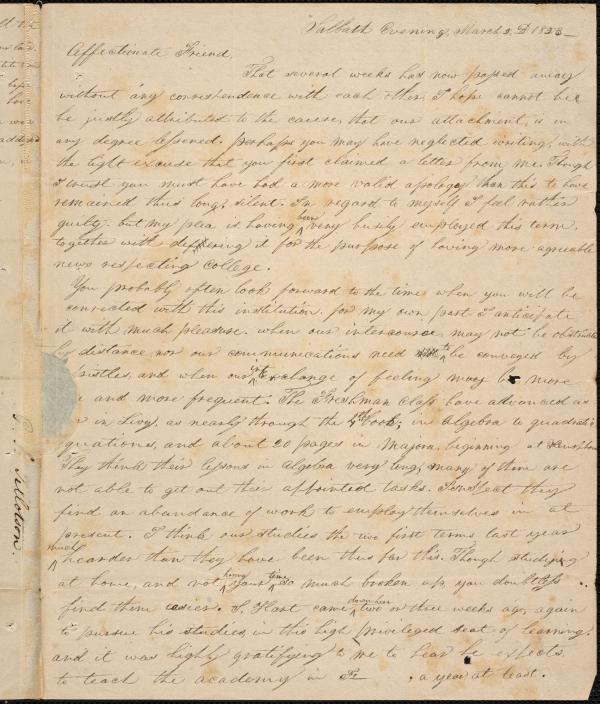 Sabbath Evening, March 3, D 1833
Affectionate Friend,
That several weeks has now passed away
without any correspondence with each other, I hope cannot be
be justly attributed to the cause, that our attachment, is in
any degree lessened. perhaps you may have neglected writing, with
the light excuse that you first claimed a letter from me. Though
I trust you must have had a more valid apology than this to have
remained thus long silent. In regard to myself I feel rather
guilty. but my plea is having been very busily employed this term,
together with deffering it for the purpose of having more agreeable
news respecting College.
You probably often look forward to the time when you will be
connected with this institution. for my own part I anticipate
it with much pleasure. when our intercourse may not be obstructe
by distance, nor our communications need to be conveyed by
epistles, and when our exchange of feeling may be more
and more frequent. The Freshman class have advanced as
in Livy, as nearly through the 4th book; in Algebra to quadratic
quations, and about 20 pages in Majora, beginning at Xenophon
They think their lessons in algebra very long; many of them are
not able to get out their appointed tasks. I suspect they
find an abundance of work to employ themselves in at
present. I think our studies the two first terms last year
much hearder than they have been thus far this. Though studying
at home, and not having your time so much broken up, you doubtless
find them easier. S. Hart came down here two or three weeks ago, again
to pursue his studies, in this high privileged seat of learning.
and it was highly gratifying to me to hear he expects
to teach the academy in F , a year at least.
Tillotson.